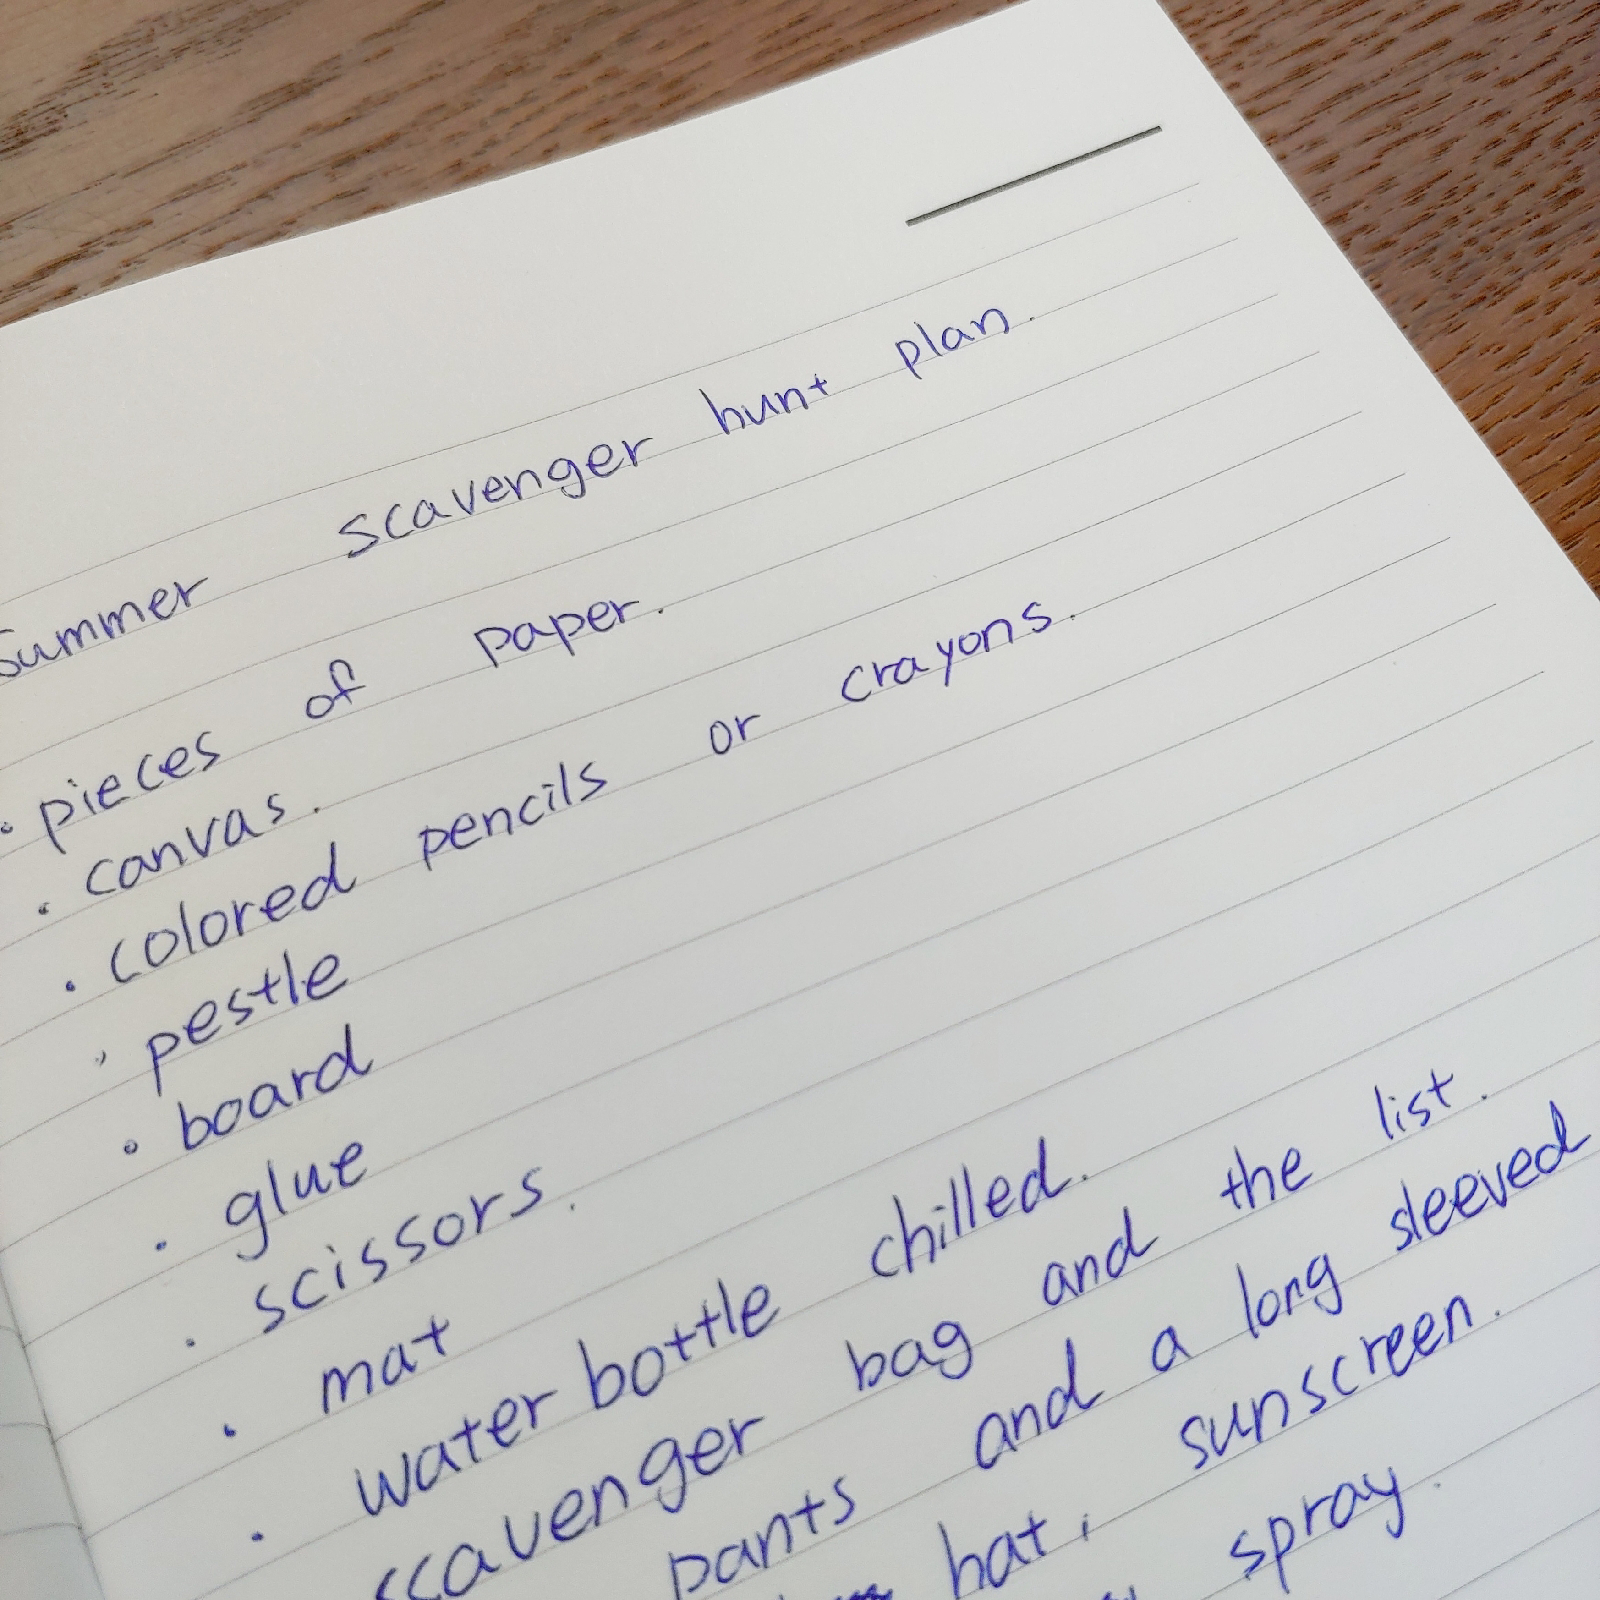 Summer scavenger hunt plan.
· pieces of paper.
· canvas.
· colored pencils or crayons.
· pestle
· board
· glue
· scissors.
· mat
· water bottle chilled.
scavenger bag and the list.
pants and a long sleeved
hat, sunscreen.
spray.